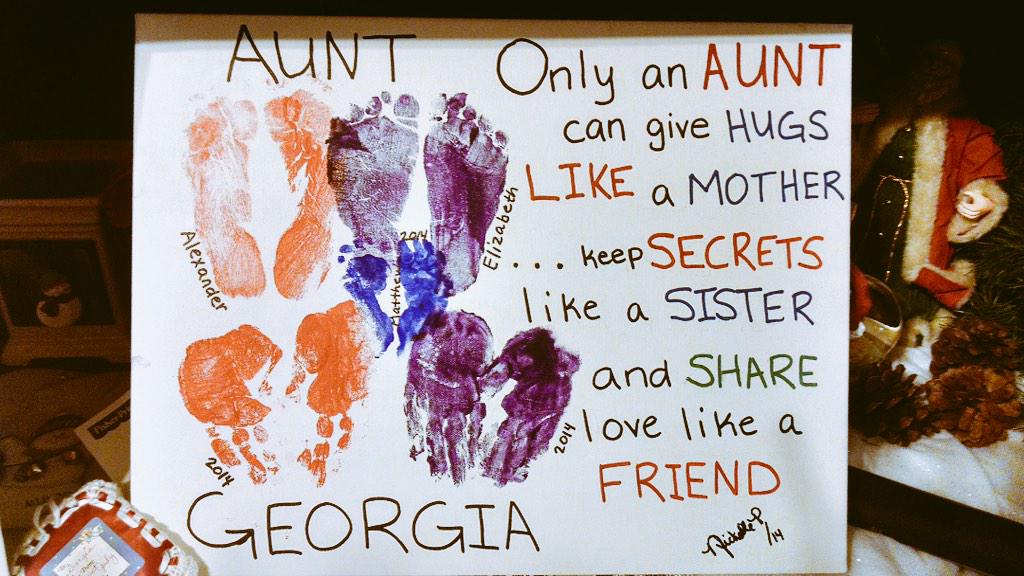 AUNT
Alexander
2014
Elizabeth
Matthew
2014
2014
GEORGIA
Only an AUNT
can give HUGS
LIKE a MOTHER
... keep SECRETS
like a SISTER
and SHARE
love like a
FRIEND
Michelle P.
/14